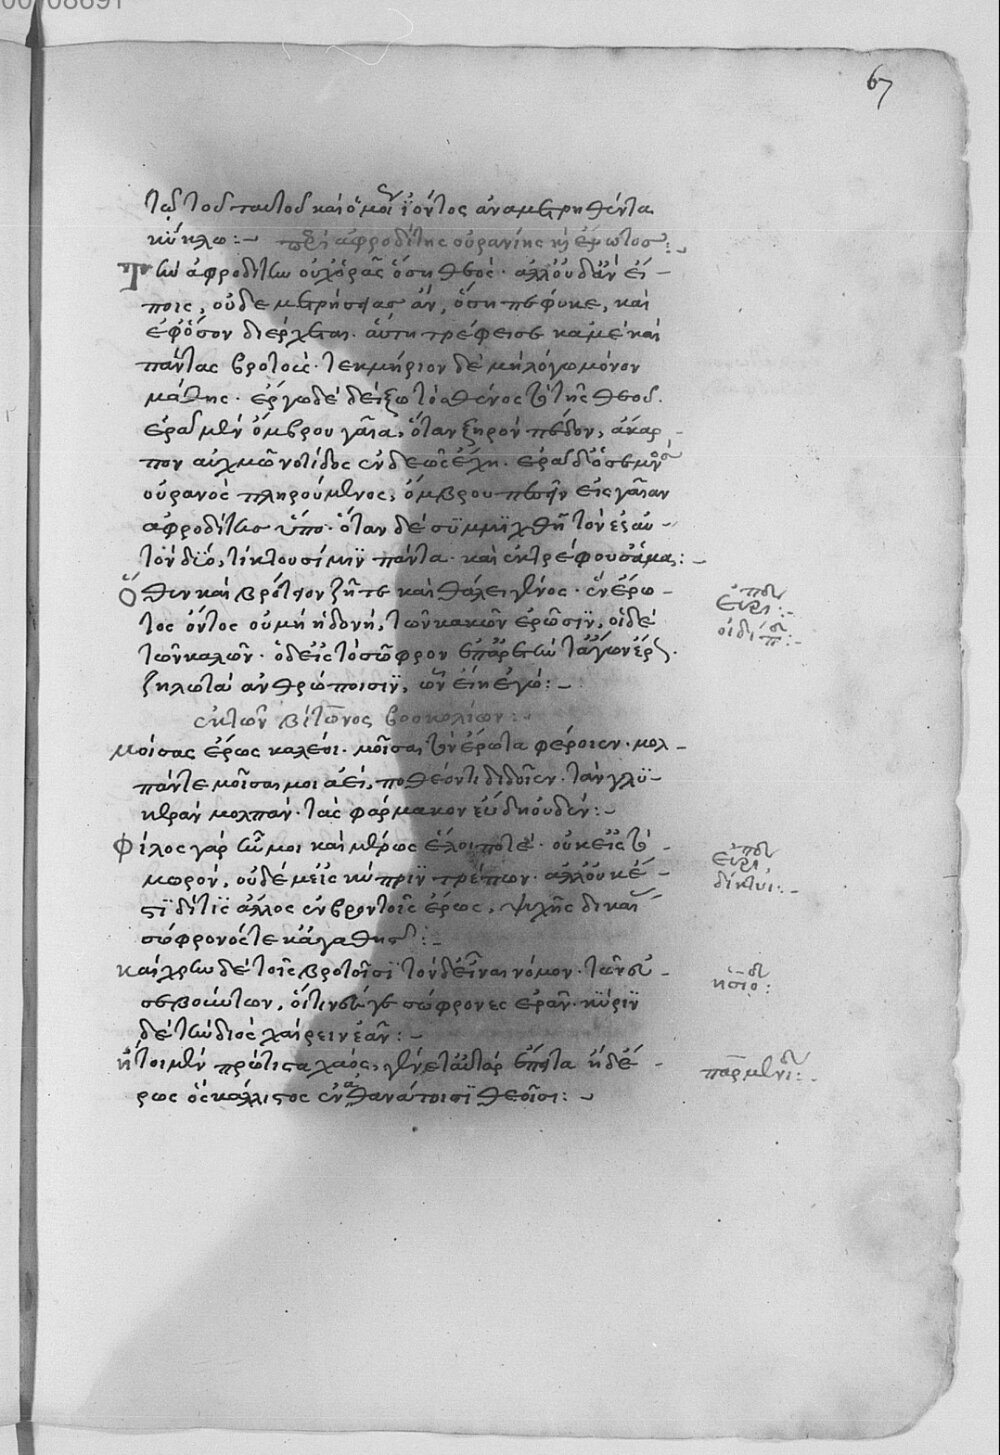 67
τῶ τοῦ παντοῦ καὶ ὁμοῦ ἰόντος ἀναμετρηθέντα
κύκλω:~ περὶ ἀφροδίτης οὐρανίης κὶ ἔρωτος:~
Τὴν ἀφροδίτην οὐχ ὁρᾶς ὅση θεός· ἀλλ' οὐδ' ἂν εἴ-
ποις, οὐδὲ μετρήσειας ἂν, ὅση πέφυκε, καὶ
ἐφ' ὅσον διέρχεται. αὕτη τρέφει σε κἀμὲ καὶ
πάντας βροτούς. τεκμήριον δὲ μὴ λόγω μόνον
μάθης. ἔργω δὲ δείξω τὸ σθένος τὸ τῆς θεοῦ.
ἐρᾶ μὲν ὄμβρου γαῖα, ὅταν ξηρὸν πέδον, ἄκαρ-
πον αὐχμῶ νοτίδος ἐνδεῶς ἔχη. ἐρᾶ δ' ὁ σεμνὸς
οὐρανὸς πληρούμενος, ὄμβρου πεσεῖν εἰς γαῖαν
ἀφροδίτης ὕπο. ὅταν δὲ συμμιχθῆτον ἐς αὐ-
τὸν δύο, τίκτουσιν ἡμῖν πάντα. καὶ ἐκτρέφουσ' ἅμα:~
Ὅθεν καὶ βρότειον ζῆ τε καὶ θάλει γένος. ἑν ἔρω-
τος ὄντος οὐ μιῆ ἡδονῆ, τῶν κακῶν ἐρῶσϊν, οἱ δὲ
τῶν καλῶν. ὁ δ' εἰς τὸ σῶφρον ἐπ' ἀρετήν τ' ἄγων ἔρως
ζηλωτὸς ἀνθρώποισϊν, ὧν εἴην ἐγώ:~
ἐκ τῶν βίωνος βουκολίων:~
μοίσας ἔρως καλέοι. μοῖσαι τὸν ἔρωτα φέροιεν. μολ-
πάν τε μοῖσαι μοι ἀεὶ, ποθέοντι διδοῖεν. τὰν γλυ-
κερὰν μολπάν. τᾶς φάρμακον ἅδιον οὐδέν:~
Φίλος γὰρ ἦν μοι καί μ' ἔρως ἕλοι ποτέ. οὐκ εἰς τὸ
μωρὸν, οὐδέ μ' εἰς κύπριν τρέπων. ἀλλ' οὐκ ἔ-
στϊ δή τϊς ἄλλος ἐν βροτοῖς ἔρως, ψυχῆς δικαίας
σώφρονός τε κἀγαθῆς:~
καὶ χρῆν δὲ τοῖς βροτοῖσϊ τόνδ' εἶναι νόμον. τῶν εὐ-
σεβούντων, οἵτινές γε σώφρονες ἐρᾶν. κύπρϊν
δὲ τὴν διὸς χαίρειν ἐᾶν:~
ἤτοι μὲν πρώτιστα χάος γένετ' αὐτὰρ ἔπειτα ἠδ' ἔ-
ρως ὃς κάλλιστος ἐν ἀθανάτοισϊ θεοῖσι:~
εὐρι:~
οἰδίπ:~
εὐρι,
δίκτυι:~
ἡσιό:
παρμενι:~